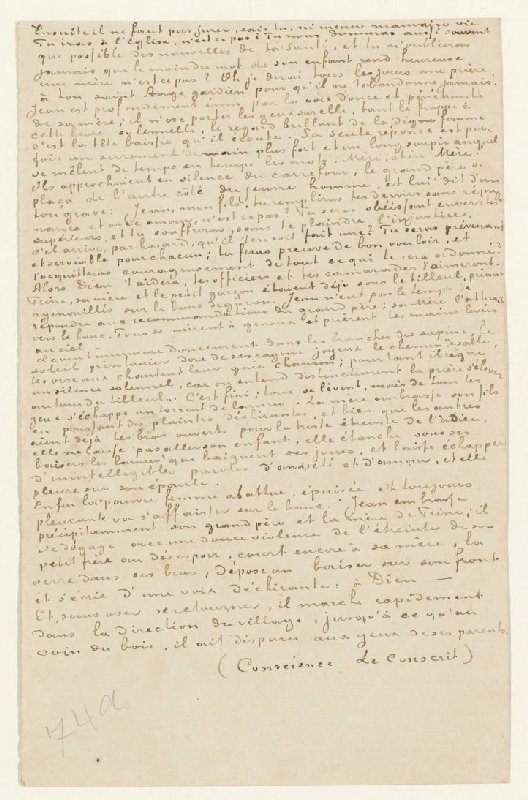 Ensuite il ne faut pas jurer, sais tu, ni mener mauvaise vie
Tu iras à l'Eglise, n'est ce pas? Tu nous donneras aussi souvent
que possible des nouvelles de ta santé, et tu n'oublieras
jamais que le moindre mot de son enfant rend heureuse
une mère n'est ce pas? Oh je dirai tous les jours une prière
à ton saint Ange gardien pour qu'il ne t'abandonne jamais.
Jean est profondément ému par la voix douce et pénétrante
de sa mère; il n'ose porter les yeux sur elle, tant le frappe à
cette heure solennelle, le regard brillant de la digne femme
c'est la tête baissée qu'il écoute. Sa seule réponse est par
fois un serrement de main plus fort et un long soupir auquel
se mêlent de temps en temps les mots: Mère, chère Mère.
Ils approchaient en silence du carrefour; le grand père se
plaça de l'autre côté du jeune homme, et lui dit d'un
ton grave: Jean, mon fils, tu rempliras tes devoirs sans répug
nance et avec amour, n'est ce pas? Tu seras obéissant envers tes
supérieurs, et tu souffriras, sans te plaindre l'injustice,
s'il arrive par hasard, qu'il t'en soit fait une? Tu seras prévenant
et serviable pour chacun; tu feras preuve de bon vouloir, et
t'acquitteras courageusement de tout ce qui te sera ordonné?
Alors Dieu t'aidera, tes officiers et tes camarades t'aimeront.
Trine, sa mère et le petit garçon étaient déjà sous le tilleul, priant
agenouillés sur le banc de gazon. Jean n'eut pas le temps de
répondre aux recommandations du grand père; sa mère l'attirait
vers le banc. Tous se mirent à genoux et prièrent les mains levées
au ciel.
Le vent murmure doucement dans les branches des sapins, le
soleil printanier dore de ses rayons joyeux le chemin de sable,
les oiseaux chantent leur gaie chanson; pourtant il règne
un silence solennel, car on entend distinctement la prière s'élever
autour du tilleul. C'est fini; tous se lèvent, mais de tous les
yeux s'échappe un torrent de larmes. La mère embrasse son fils
en poussant des plaintes déchirantes, et bien que les autres
aient déjà les bras ouverts pour la triste étreinte de l'adieu,
elle ne laisse pas aller son enfant, elle étanche sous ses
baisers les larmes qui baignent ses joues, et laisse échapper
d'inintelligibles paroles d'anxiété et d'amour, et elle
pleure sur son épaule.
Enfin la pauvre femme abattue, épuisée et toujours
pleurante va s'affaisser sur le banc. Jean embrasse
précipitamment son grand père et la mère de Trine; il
se dégage avec une douce violence de l'étreinte de son
petit frère au désespoir, court encore à sa mère, la
serre dans ses bras, dépose un baiser sur son front
et s'écrie d'une voix déchirante: à Dieu —
Et, sans oser se retourner, il marche rapidement
dans la direction du village, jusqu'à ce qu'au
coin du bois, il ait disparu aux yeux de ses parents.
(Conscience Le Conscrit)
74a